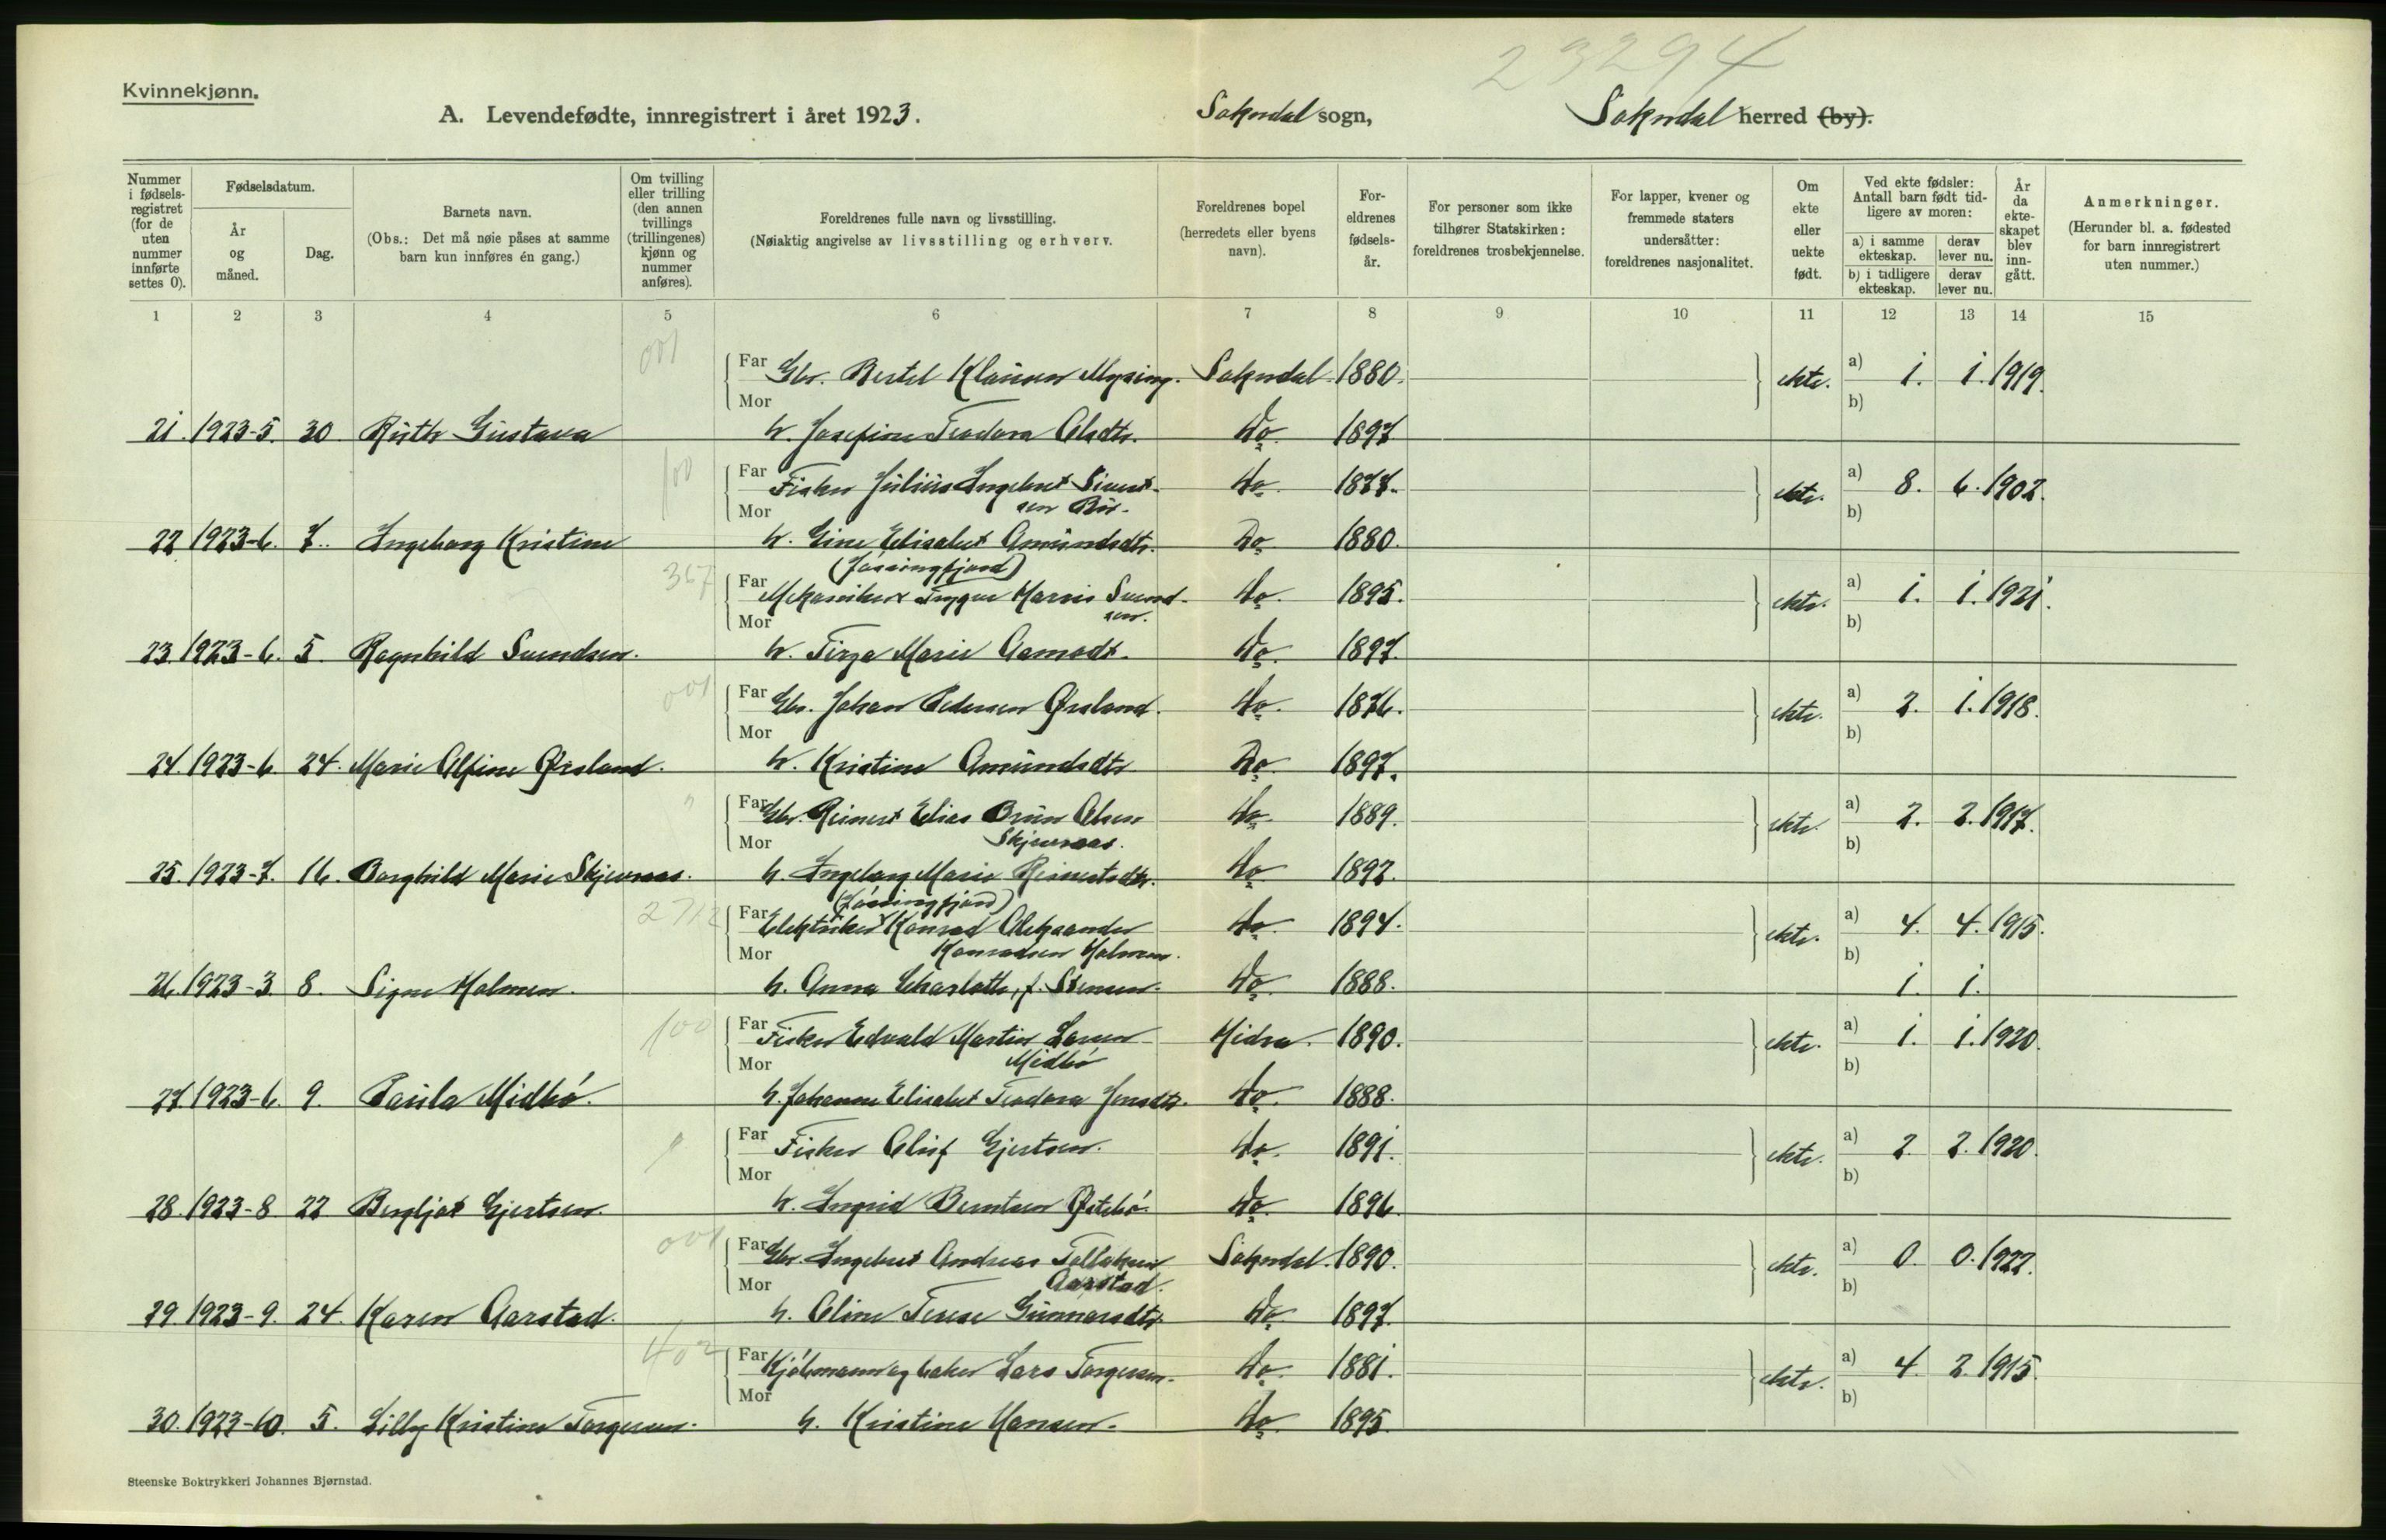 23294
Kvinnekjønn.
A. Levendefødte, innregistrert i året 1923.
Sokndal sogn,
Sokndal herred (by).
Nummer i fødsels-registret (for de uten nummer innførte settes 0).
Fødselsdatum.
År og måned.
Dag.
Barnets navn.
(Obs.: Det må nøie påses at samme barn kun innføres én gang.)
Om tvilling eller trilling (den annen tvillings (trillingenes) kjønn og nummer anføres).
Foreldrenes fulle navn og livsstilling.
(Nøiaktig angivelse av livsstilling og erhverv.
Foreldrenes bopel (herredets eller byens navn).
For-eldrenes fødsels-år.
For personer som ikke tilhører Statskirken: foreldrenes trosbekjennelse.
For lapper, kvener og fremmede staters undersåtter: foreldrenes nasjonalitet.
Om ekte eller uekte født.
Ved ekte fødsler: Antall barn født tid-ligere av moren:
a) i samme ekteskap.
derav lever nu.
b) i tidligere ekteskap.
derav lever nu.
År da ekte-skapet blev inn-gått.
Anmerkninger.
(Herunder bl. a. fødested for barn innregistrert uten nummer.)
1 2 3 4 5 6 7 8 9 10 11 12 13 14 15
001
Far Gbr. Bertel Klausen Mysing. Sokndal. 1880. ekte. a) 1. 1. 1919.
Mor b)
21. 1923-5. 30 Ruth Gustava h. Josefine Teodora Olsdtr. do. 1897
100
Far Fisker Julius Ingebret Sivert- do. 1877. ekte. a) 8. 6. 1902.
Mor sen b)
22 1923-6. 7. Ingeborg Kristine h. Gine Elisabet Amundsdtr. Do. 1880.
(Jøssingfjord)
367
Far Mekaniker Trygve Marius Svend- do. 1895. ekte. a) 1. 1. 1921.
Mor sen. b)
23. 1923-6. 5. Ragnhild Svendsen. h. Tirza Marie Aamodt. do. 1897.
001
Far Gbr. Johan Pedersen Ørsland. do. 1876. ekte. a) 2. 1. 1918.
Mor b)
24. 1923-6. 24. Marie Alfine Ørsland. h. Kristine Amundsdtr Do. 1897.
"
Far Gbr. Reinert Elias Brun Olsen do. 1889. ekte. a) 2. 2. 1917.
Mor Skjevraas. b)
25. 1923-7. 16. Borghild Marie Skjevraas. h. Ingeborg Marie Reinertsdtr. do 1892.
(Jøssingfjord)
Far Elektriker Konrad Aleksander do. 1894. ekte. a) 4. 4. 1915.
Mor Konradsen Holmen. b)
26. 1923-3. 8. Signe Holmen. h. Anna Charlotte, f. do. 1888. 1. 1.
100
Far Fisker Edvald Martin Larsen Hidra. 1890. ekte. a) 1. 1. 1920.
Mor Midbø b)
27. 1923-6. 9. Paula Midbø. h. Johanne Elisabet Teodora Jensdtr. do. 1888.
Far Fisker Oluf Gjertsen. do. 1891. ekte. a) 2. 2. 1920.
Mor b)
28. 1923-8. 22 Bergljot Gjertsen. h. Ingrid Berntsen Østebø. do. 1896.
001
Far Gbr. Ingebret Andreas Tollaksen Sokndal. 1890. ekte. a) 0. 0. 1922.
Mor Aarstad. b)
29 1923-9. 24. Karen Aarstad. h. Oline Terese Gunnarsdtr. do. 1897.
402
Far Kjøbmann og baker Lars Torgersen. do. 1881. ekte. a) 4. 2. 1915.
Mor b)
30. 1923-10. 5. Lilly Kristine Torgersen. h. Kristine Hansen. do. 1895.
Steenske Boktrykkeri Johannes Bjørnstad.